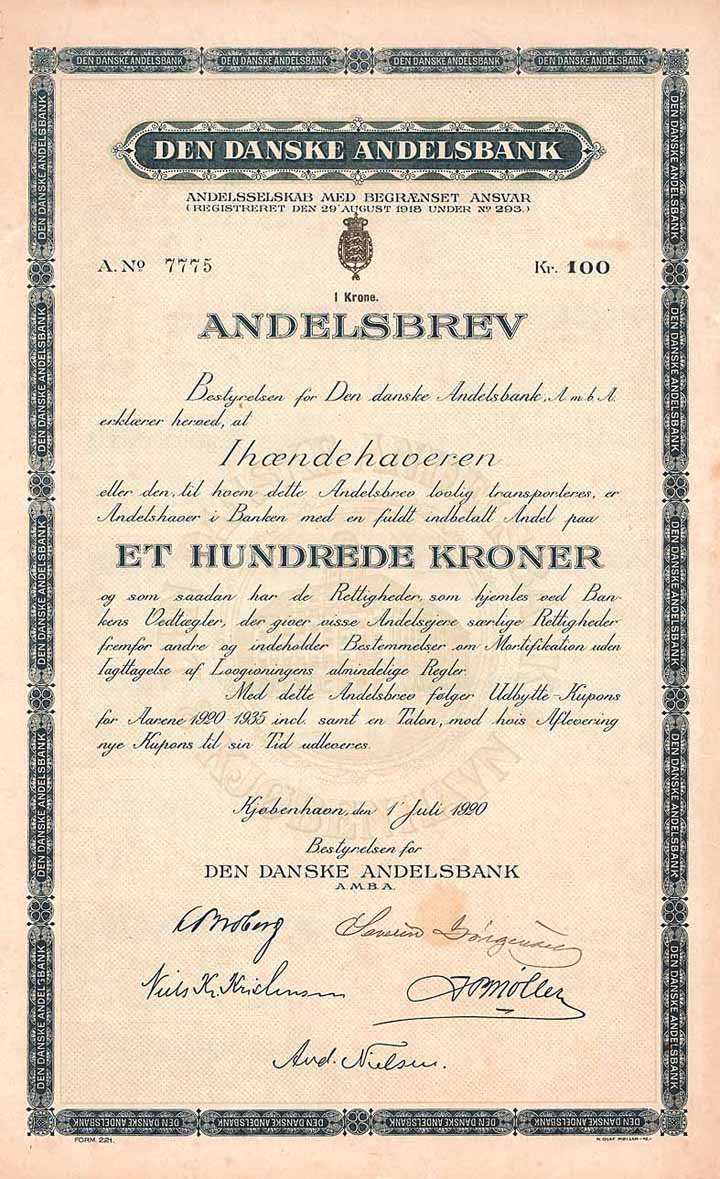 DEN DANSKE ANDELSBANK DEN DANSKE ANDELSBANK DEN DANSKE ANDELSBANK DEN DANSKE ANDELSBANK
DEN DANSKE ANDELSBANK
ANDELSSELSKAB MED BEGRÆNSET ANSVAR
(REGISTRERET DEN 29' AUGUST 1918 UNDER Nº 293.)
A. Nº 7775 Kr. 100
1 Krone.
ANDELSBREV
Bestyrelsen for Den danske Andelsbank, A. m. b. A.
erklærer herved, at
Ihændehaveren
eller den, til hvem dette Andelsbrev lovlig transporteres, er
Andelshaver i Banken med en fuldt indbetalt Andel paa
ET HUNDREDE KRONER
og som saadan har de Rettigheder, som hjemles ved Ban-
kens Vedtægter, der giver visse Andelsejere særlige Rettigheder
fremfor andre og indeholder Bestemmelser om Mortifikation uden
Iagttagelse af Lovgivningens almindelige Regler.
Med dette Andelsbrev følger Udbytte-Kupons
for Aarene 1920-1935 incl. samt en Talon, mod hvis Aflevering
nye Kupons til sin Tid udleveres.
Kjøbenhavn, den 1' Juli 1920
Bestyrelsen for
DEN DANSKE ANDELSBANK
A.M.B.A.
Severin Jørgensen
Niels Kr. Kristensen
Møller
And. Nielsen.
DEN DANSKE ANDELSBANK DEN DANSKE ANDELSBANK DEN DANSKE ANDELSBANK DEN DANSKE ANDELSBANK
DEN DANSKE ANDELSBANK DEN DANSKE ANDELSBANK DEN DANSKE ANDELSBANK DEN DANSKE ANDELSBANK DEN DANSKE ANDELSBANK
DEN DANSKE ANDELSBANK DEN DANSKE ANDELSBANK DEN DANSKE ANDELSBANK DEN DANSKE ANDELSBANK DEN DANSKE ANDELSBANK
FORM. 221.
H. OLAF MØLLER